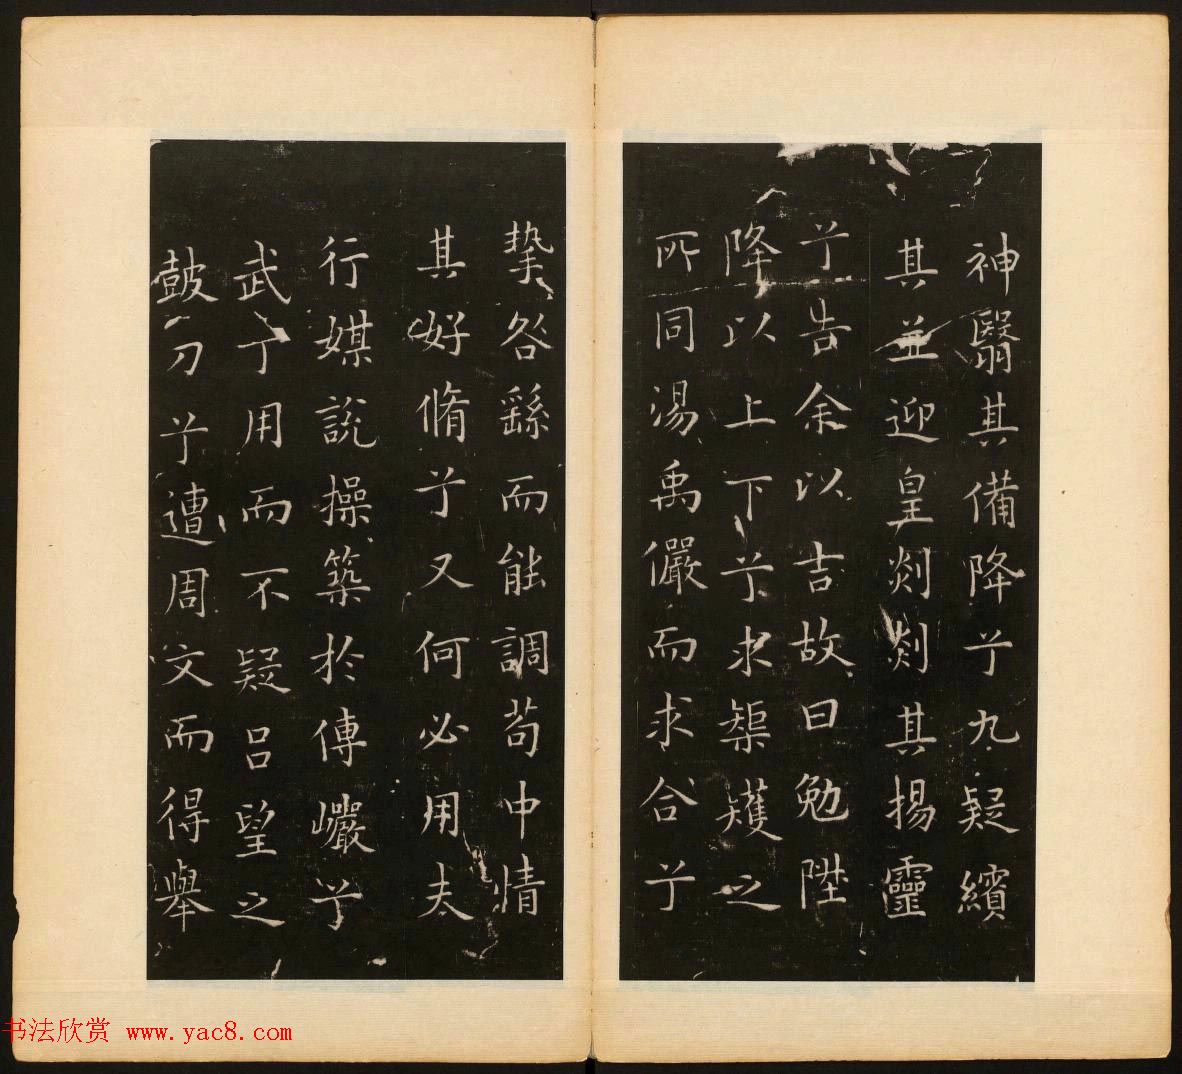 神翳其備降兮九疑繽
其並迎皇剡剡其揚靈
兮告余以吉故曰勉陞
降以上下兮求榘矱之
所同湯禹儼而求合兮
摯咎繇而能調苟中情
其好脩兮又何必用夫
行媒說操築於傅巖兮
武丁用而不疑呂望之
鼓刀兮遭周文而得舉
书法欣赏 www.yac8.com